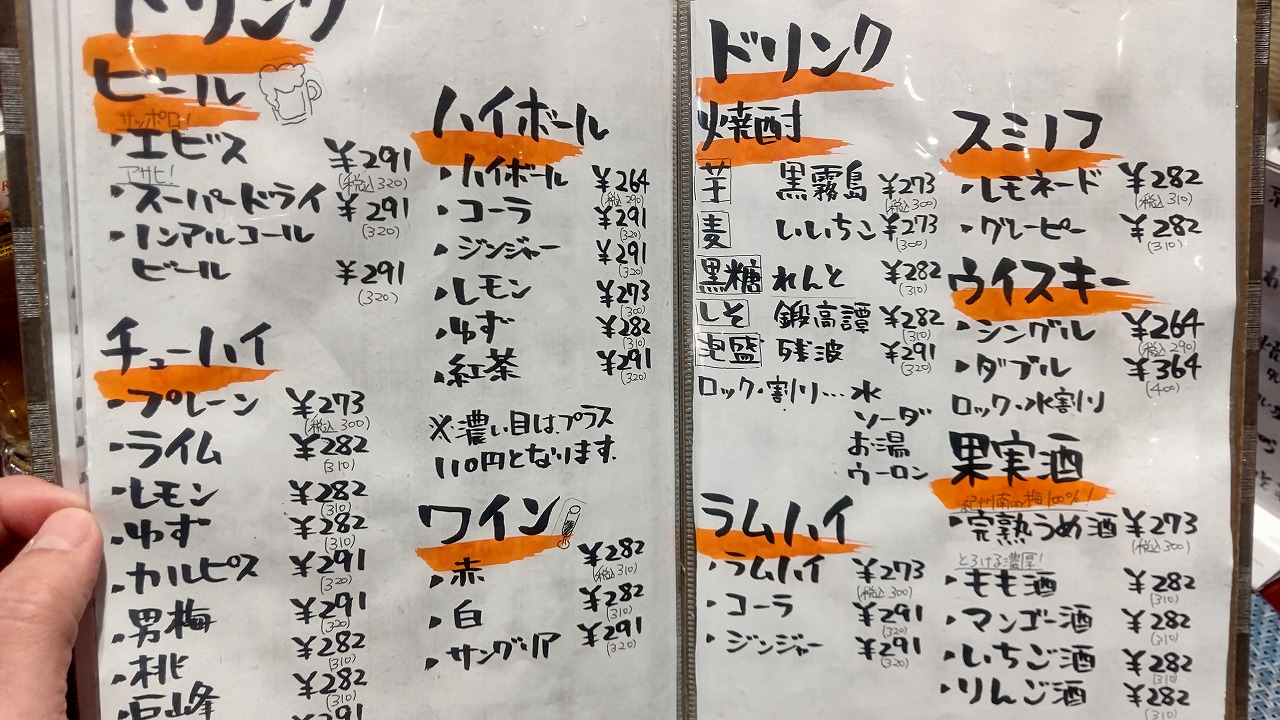 ドリンク
ビール
サッポロ!
・エビス ¥291
(税込320)
アサヒ!
・スーパードライ ¥291
(320)
・ノンアルコール
ビール ¥291
(320)
チューハイ
・プレーン ¥273
(税込300)
・ライム ¥282
(310)
・レモン ¥282
(310)
・ゆず ¥282
(310)
・カルピス ¥291
(320)
・男梅 ¥291
(320)
・桃 ¥282
(310)
・巨峰 ¥282
(310)
¥291
ハイボール
・ハイボール ¥264
(税込290)
・コーラ ¥291
(320)
・ジンジャー ¥291
(320)
・レモン ¥273
(300)
・ゆず ¥282
(310)
・紅茶 ¥291
(320)
※濃い目はプラス
110円となります。
ワイン
・赤 ¥282
(税込310)
・白 ¥282
(310)
・サングリア ¥291
(320)
ドリンク
焼酎
芋 黒霧島 ¥273
(税込300)
麦 いいちこ ¥273
(300)
黒糖 れんと ¥282
(310)
しそ 鍛高譚 ¥282
(310)
泡盛 残波 ¥291
(320)
ロック・割り…水
ソーダ
お湯
ウーロン
ラムハイ
・ラムハイ ¥273
(税込300)
・コーラ ¥291
(320)
・ジンジャー ¥291
(320)
スミノフ
・レモネード ¥282
(税込310)
・グレーピー ¥282
(310)
ウイスキー
・シングル ¥264
(税込290)
・ダブル ¥364
(400)
ロック・水割り
果実酒
紀州南高梅100%!
・完熟うめ酒 ¥273
(税込300)
とろける濃厚!
・もも酒 ¥282
(310)
・マンゴー酒 ¥282
(310)
・いちご酒 ¥282
(310)
・りんご酒 ¥282
(310)